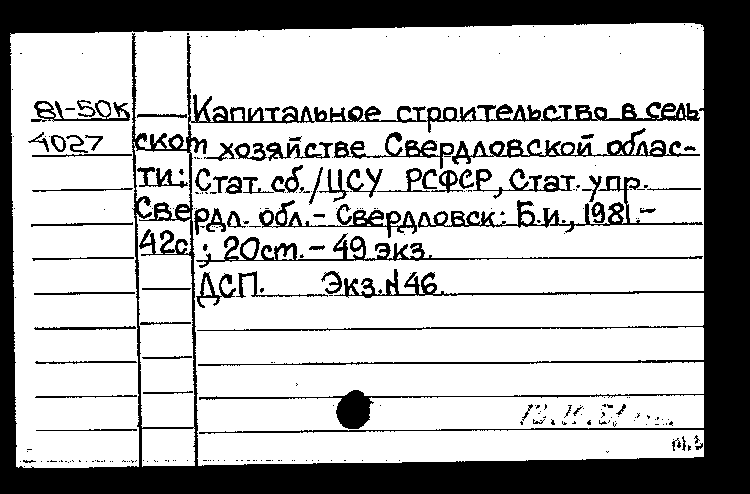 81-50к Капитальное строительство в сель-
4027 ском хозяйстве Свердловской облас-
ти: Стат. сб./ЦСУ РСФСР, Стат. упр.
Свердл. обл.- Свердловск: Б.и., 1981.-
42с.; 20см.- 49 экз.
ДСП. Экз.N46.